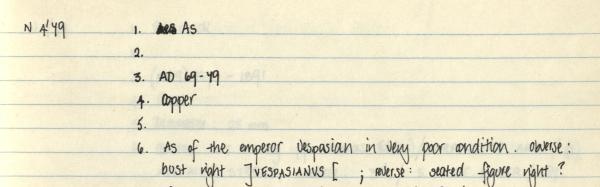 N 4'49 1. As
2.
3. AD 69-79
4. Copper
5.
6. As of the emperor Vespasian in very poor condition. obverse:
bust right ]VESPASIANVS [ ; reverse: seated figure right?